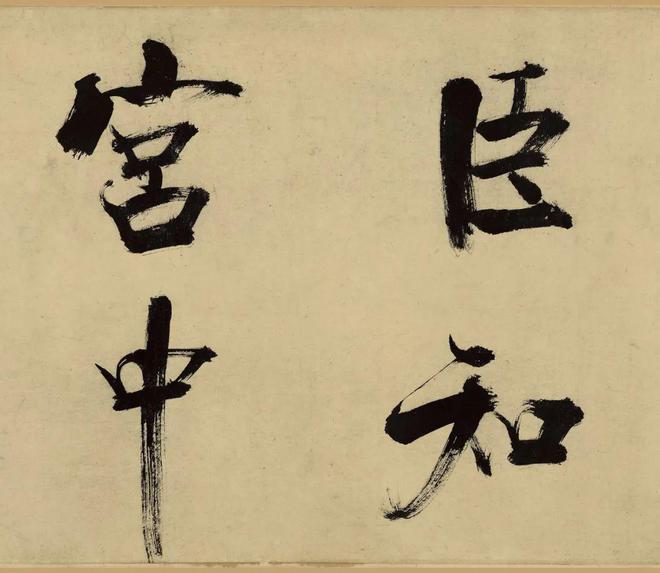 臣知
宮中